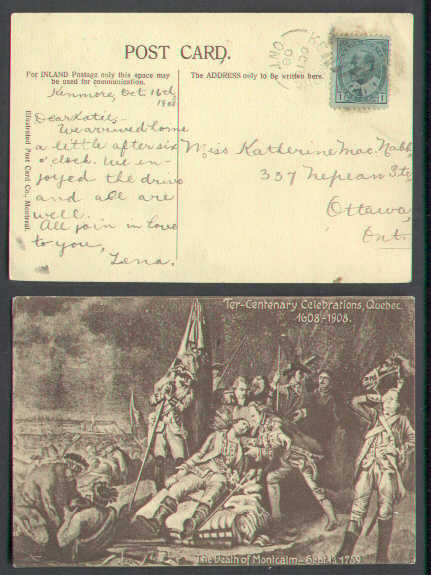 POST CARD.
For INLAND Postage only this space may
be used for communication.
The ADDRESS only to be written here.
KENM
OCT
08
ONT
1 1
Kenmore, Oct 16th,
1908
Dear Katie,-
We arrived home
a little after six
o'clock. We en-
joyed the drive
and all are
well.
All join in love
to you,
Lena.
Miss Katherine Mac. Nabb,
337 Nepean St.,
Ottawa,
Ont.
Illustrated Post Card Co., Montreal.
Ter-Centenary Celebrations, Quebec.
1608-1908.
The Death of Montcalm - Sept. 13, 1759